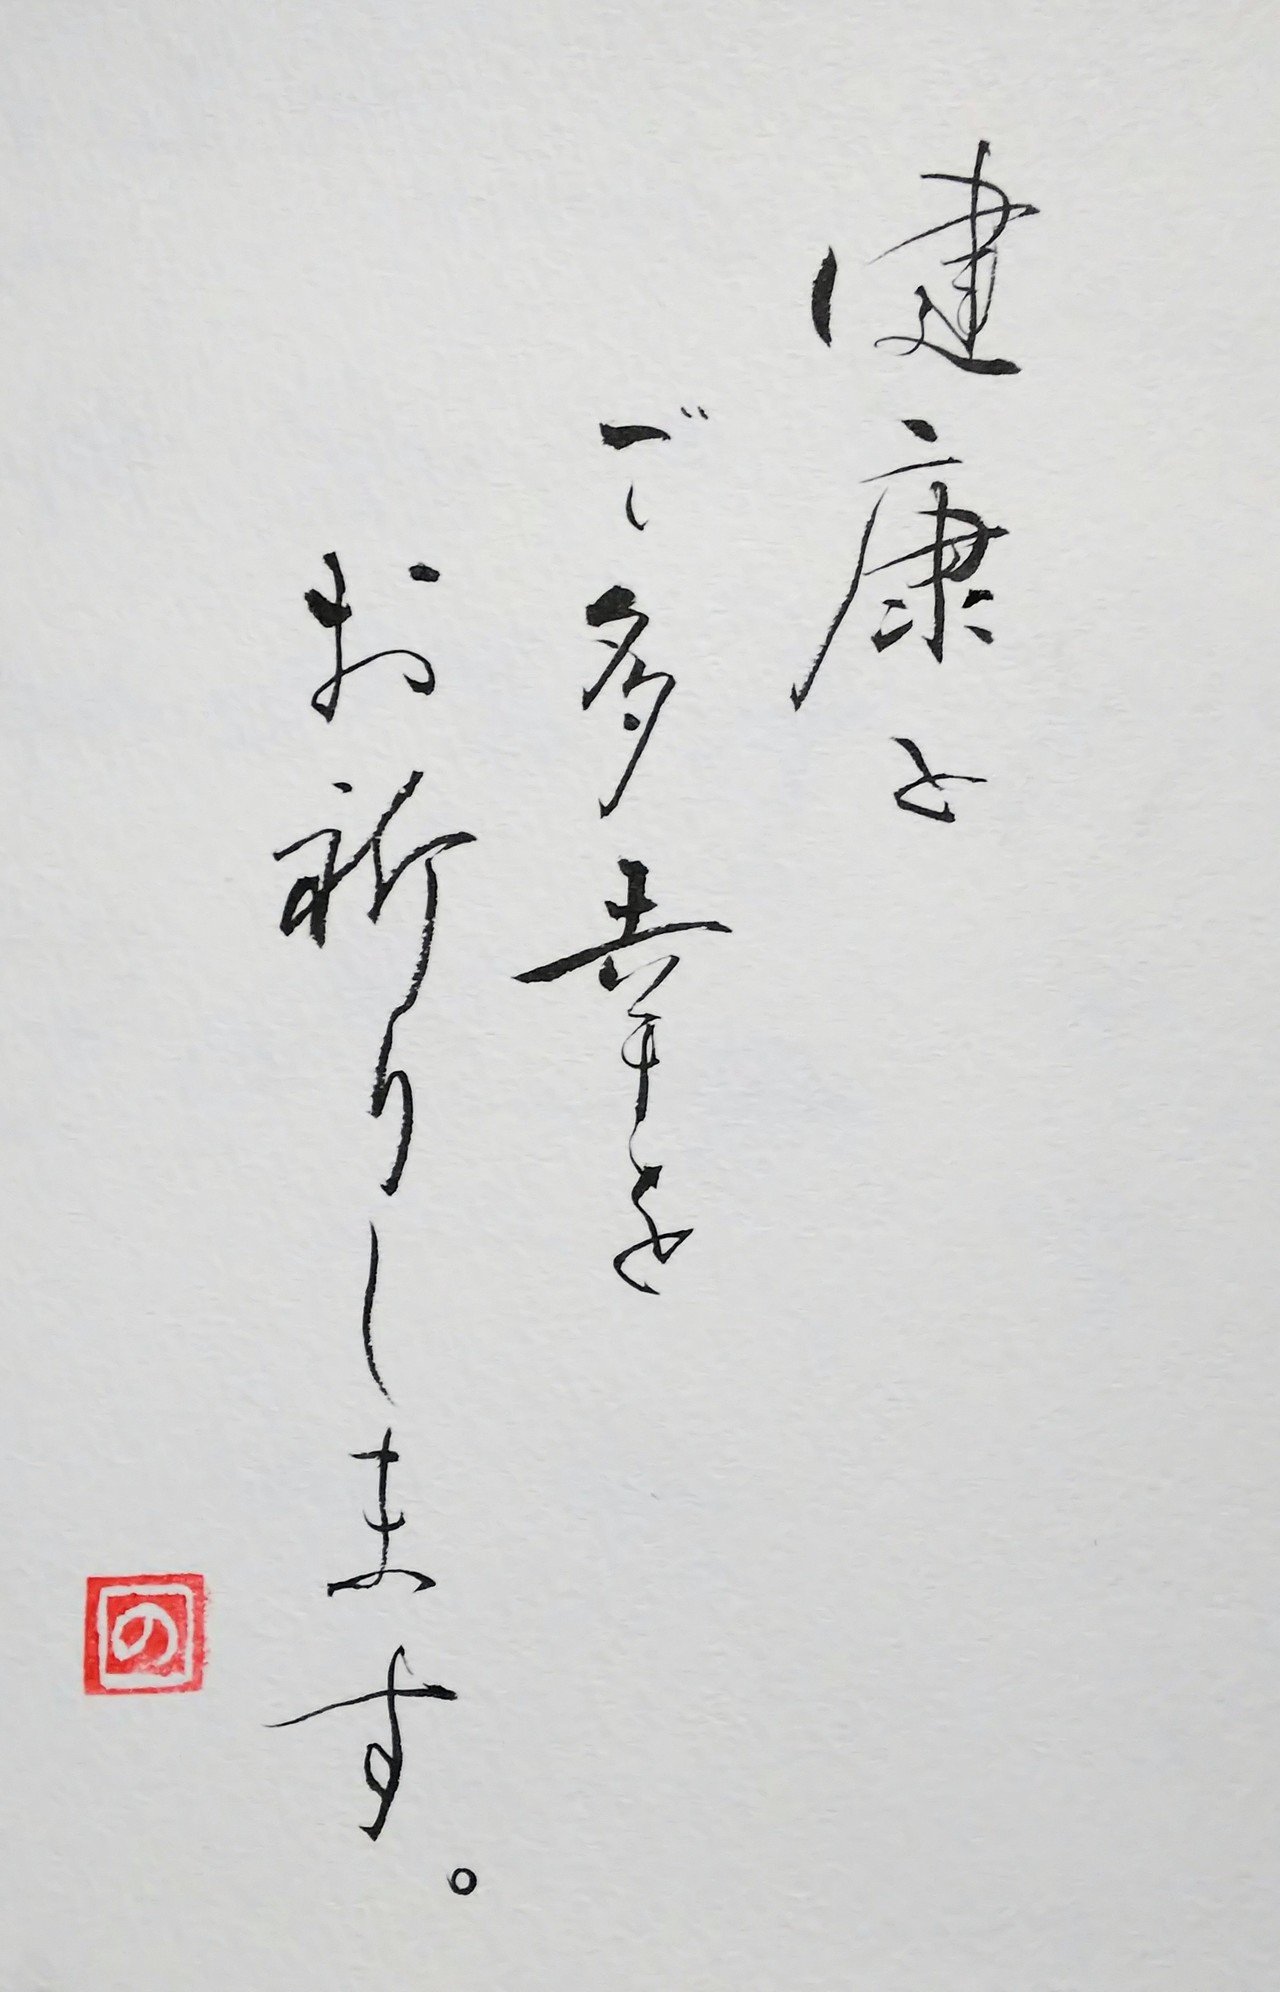 健康と
ご多幸を
お祈りします。
の